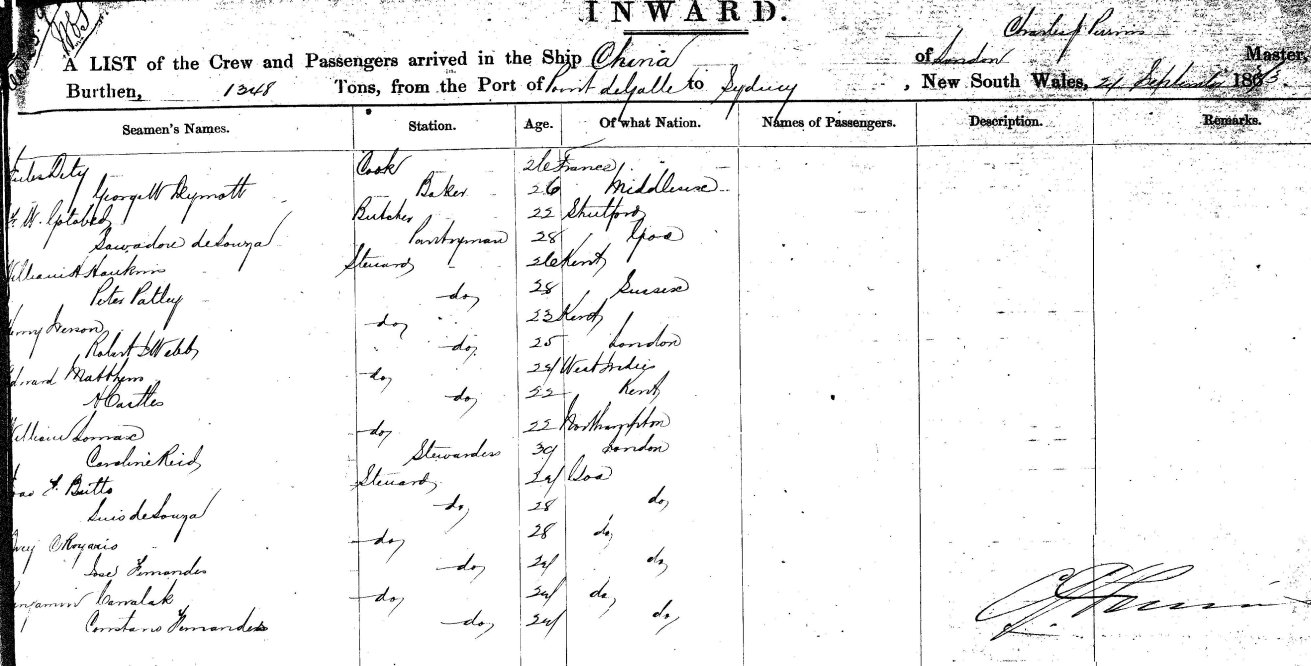 INWARD.
A LIST of the Crew and Passengers arrived in the Ship China of London Charles J Perrins Master,
Burthen, 1348 Tons, from the Port of Point de Galle to Sydney, New South Wales, 21 September 186
Seamen's Names. Station. Age. Of what Nation. Names of Passengers. Description. Remarks.
Cook 26 France
George W Deymott Baker 26 Middlesex
W. Butcher 22
Sawadore de Souza Pantryman 28 Goa
William H Hawkins Steward 26 Kent
Peter Patley do 28 Sussex
Henry Iverson do 23 Kent
Robert Webb do 25 London
Edward Matthews do 24 West Indies
H Castles do 22 Kent
William Lomax do 22 Northampton
Caroline Reid Stewardess 39 London
F. Butto Steward 24 Goa
Luis de Souza do 28 do
Rozario do 28 do
Jose Fernandes do 24 do
Benjamin do 24 do
Constano Fernandes do 24 do